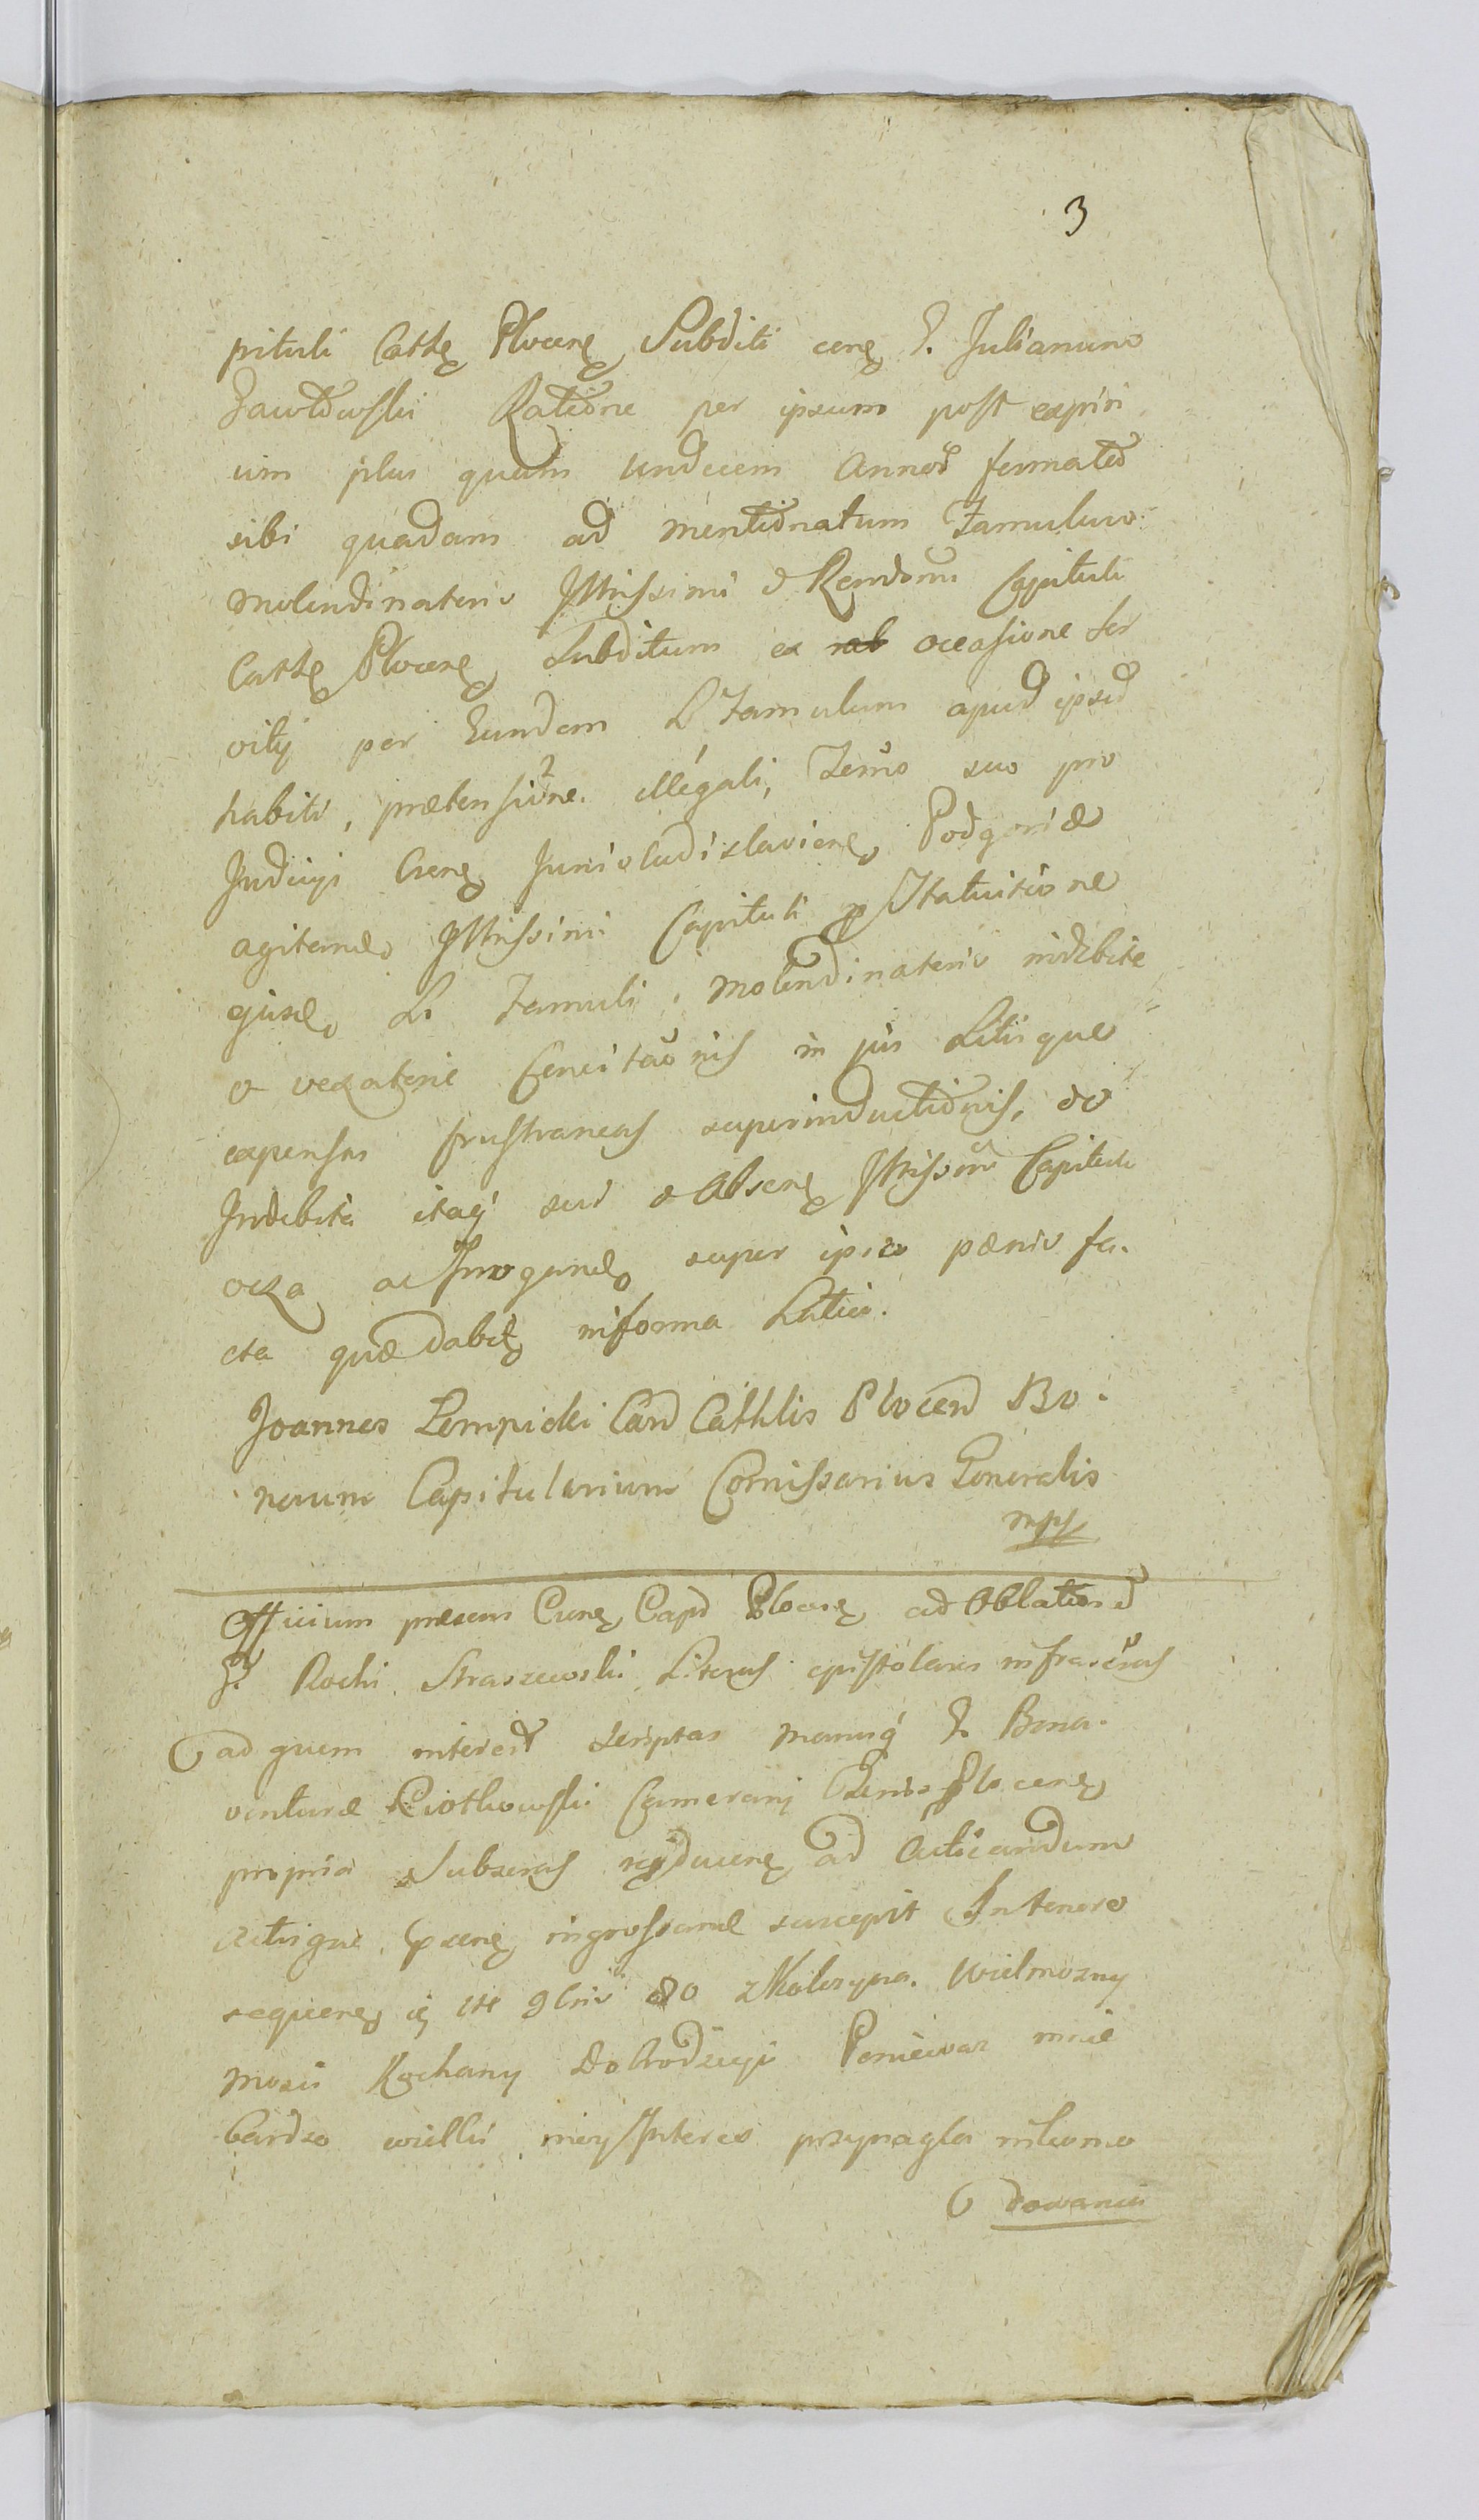 3
pituli Cathę Plocenę Subditi cerę G. Julianum
Zawłdowski Ratione per ipsum post expiri
um plus quam undecem Annos formatu
sibi quadam ad mentionatum Famulum
molendinatorio Illrissimi & Rendmi Capituli
Cathę Plocenę Subditum ex occasione ser
vitÿ per Eundem L Famulum apud ipsu
habiti, prætensione illegali, Termo suo pro
Judicÿ Csenę Juniwladislavienę, Podgoriæ
agitemę Illrissimi Capituli Statuitione
ejusd. L. Famuli, molendinatorio indebite
& vexatorie Concitaonis in jus Litisque
expensas frustraneas superinductionis, de
Indebita itaq sui & Absenę Illrissmi Capituli
vexa ac Irrogand super ipso pænis fa.
cta quæ dabitę in forma Latius.
Joannes Lempicki Can Cathlis Plocen Bo.
norum Capitularium Comissarius Generalis
mpp
Officium præsens Cunę, Capit Plocenę ad Oblatione
G. Rochi Straszewski Literas epistolares infrascras
ad quem interest scriptas manuq G. Bona.
venturæ Piotkowski Camerarij Plocenę
propria Subscras ad Acticandum
Actisque ingrossand suscepit Tenore
sequenę 9bris 80 z Kobrzynca. Wielmozny
mosci Kochany Dobrodzieju Poniewaz mnie
bardzo wielki moy Interes przynagla
dowania